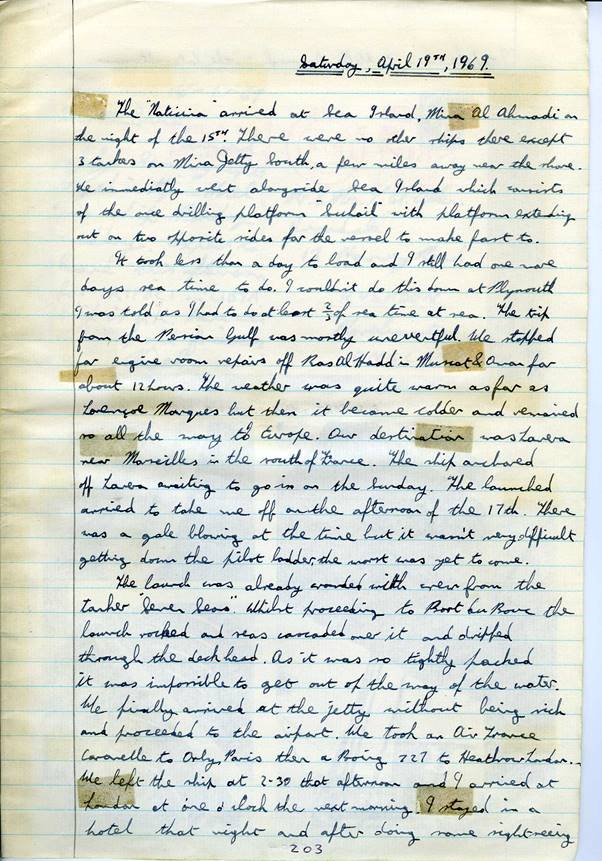 Saturday, April 19TH, 1969.
The "Naticina" arrived at Sea Island, Mina Al Ahmadi on
the night of the 15TH. There were no other ships there except
3 tankers on Mina Jetty South, a few miles away near the shore.
We immediatly went alongside Sea Island which consists
of the once drilling platform "Suhail" with platform extending
out on two opposite sides for the vessel to make fast to.
It took less than a day to load and I still had one more
days sea time to do. I wouldn't do this down at Plymouth
I was told as I had to do at least 2/3 of sea time at sea. The trip
from the Persian Gulf was mostly uneventful. We stopped
for engine room repairs off Ras Al Hadd in Muscat & Oman for
about 12 hours. The weather was quite warm as far as
Lorenço Marques but then it became colder and remained
so all the way to Europe. Our destination was Lavera
near Marseilles in the south of France. The ship anchored
off Lavera awaiting to go in on the Sunday. The launched
arrived to take me off on the afternoon of the 17th. There
was a gale blowing at the time but it wasn't very difficult
getting down the pilot ladder, the worst was yet to come.
The launch was already crowded with crew from the
tanker "Seven Seas". Whilst proceeding to Port du Bouc the
launch rocked and seas cascaded over it and dripped
through the deck head. As it was so tightly packed
it was impossible to get out of the way of the water.
We finally arrived at the jetty without being sick
and proceeded to the airport. We took an Air France
Caravelle to Orly, Paris then a Boeing 727 to Heathrow London.
We left the ship at 2-30 that afternoon and I arrived at
London at one o clock the next morning. I stayed in a
hotel that night and after doing some sightseeing
203